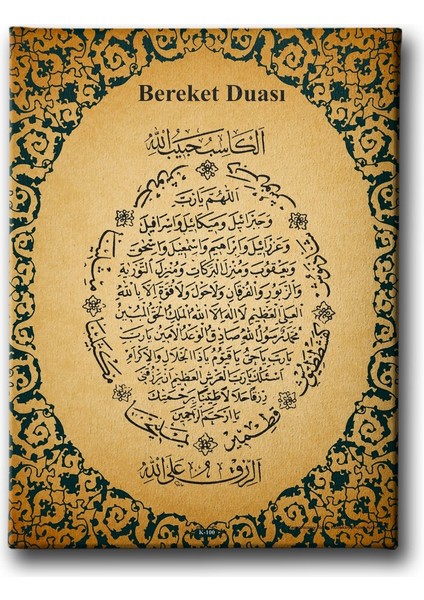 Bereket Duası
الكاسب حبيب الله
اللهم يارب
وجبرائيل وميكائيل واسرافيل
وعزرائيل وابراهيم واسمعيل واسحق
ويعقوب ومنزل البركات ومنزل التورية
والزبور والفرقان ولاحول ولا قوة الا بالله
العلى العظيم لا اله الا الله الملك الحق المبين
محمد رسول الله صادق الوعد الامين يارب
يارب ياحى يا قيوم ياذا الجلال والاكرام
اسئلك يارب العرش العظيم ان ترزقنى
رزقا حلالا طيبا برحمتك
يا ارحم الراحمين
يمليخا
مكثلينا
مثلينا
مرنوش
دبرنوش
شاذنوش
كفشططيوش
قطمير
الرزق على الله
K-100